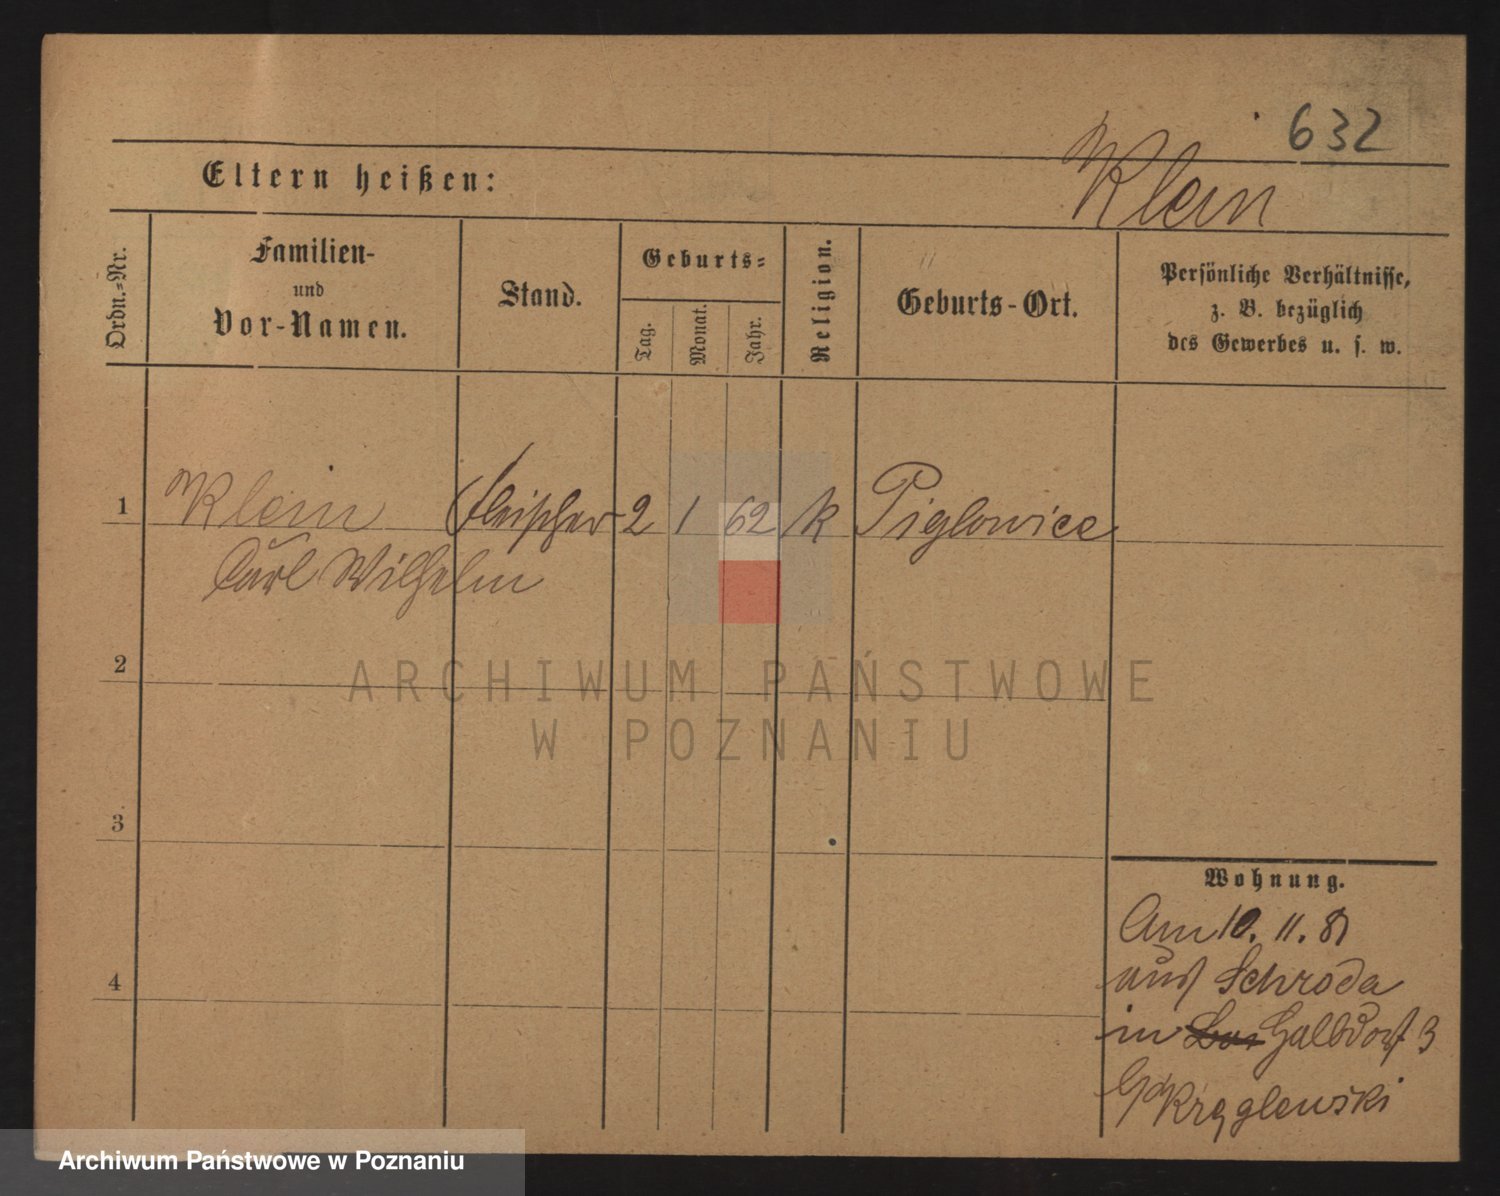 632
Klein
Eltern heißen:
Ordn.-Nr.
Familien-
und
Vor-Namen.
Stand.
Geburts-
Tag.
Monat.
Jahr.
Religion.
Geburts-Ort.
Persönliche Verhältnisse,
z. B. bezüglich
des Gewerbes u. s. w.
1 Klein Fleischer 2 1 62 k Piglowice
Carl Wilhelm
2
3
4
Wohnung.
Am 10. 11. 81
aus Schroda
in Halbdorf 3
Kręglewski
ARCHIWUM PAŃSTWOWE
W POZNANIU
Archiwum Państwowe w Poznaniu